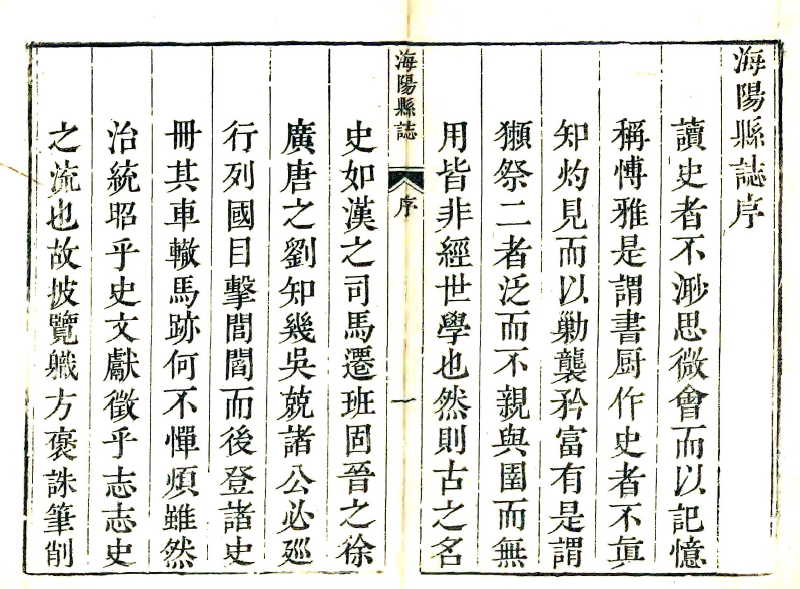 海陽縣誌序
讀史者不渺思微會而以記憶
稱愽雅是謂書厨作史者不眞
知灼見而以勦襲矜富有是謂
獺祭二者泛而不親與圂而無
用皆非經世學也然則古之名
海陽縣誌
序
一
史如漢之司馬遷班固晉之徐
廣唐之劉知幾吳兢諸公必廵
行列國目擊閭閻而後登諸史
冊其車轍馬跡何不憚煩雖然
治統昭乎史文獻徵乎志志史
之流也故披覽軄方褒誅筆削